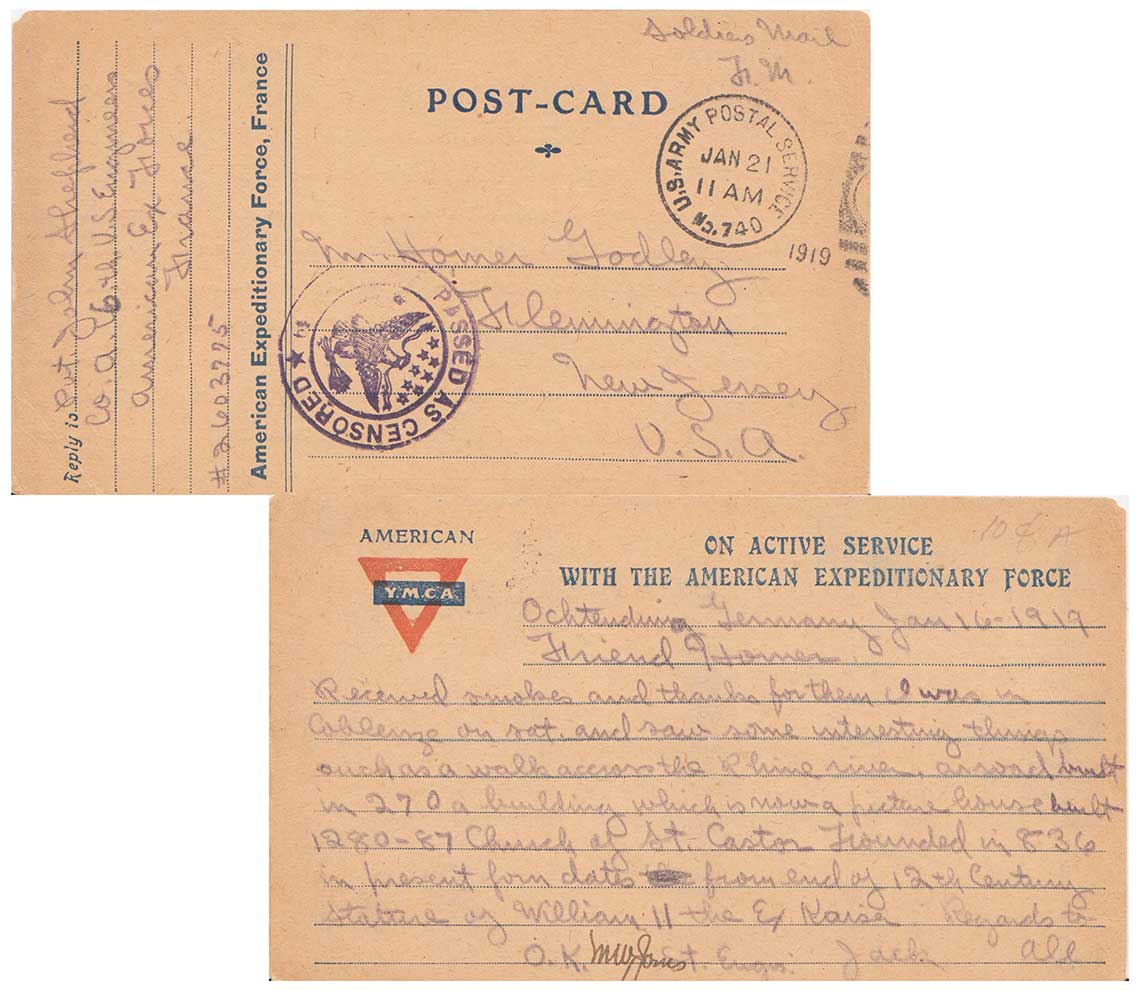 Soldiers Mail
F. M.
POST-CARD
U.S. ARMY POSTAL SERVICE
JAN 21
11 AM
No. 740
1919
Mr. Homer Godley
Flemington
New Jersey
U.S.A.
PASSED AS CENSORED
American Expeditionary Force, France
Reply to Pvt. John Shepherd
Co. A. 6th U.S. Engineers
American Ex Forces
France
#2603775
AMERICAN
Y.M.C.A.
ON ACTIVE SERVICE
WITH THE AMERICAN EXPEDITIONARY FORCE
Ochtendung Germany Jan 16-1919
Friend Homer
Received smokes and thanks for them I was in
Coblenze on sat. and saw some interesting things
such as a walk accross the Rhine river, a road built
in 270 a building which is now a picture house built
1280-87 Church of St. Castor Founded in 836
in present form dates from end of 12th Century
Statue of William 11 the Ex Kaiser Regards to
O.K. Jack All